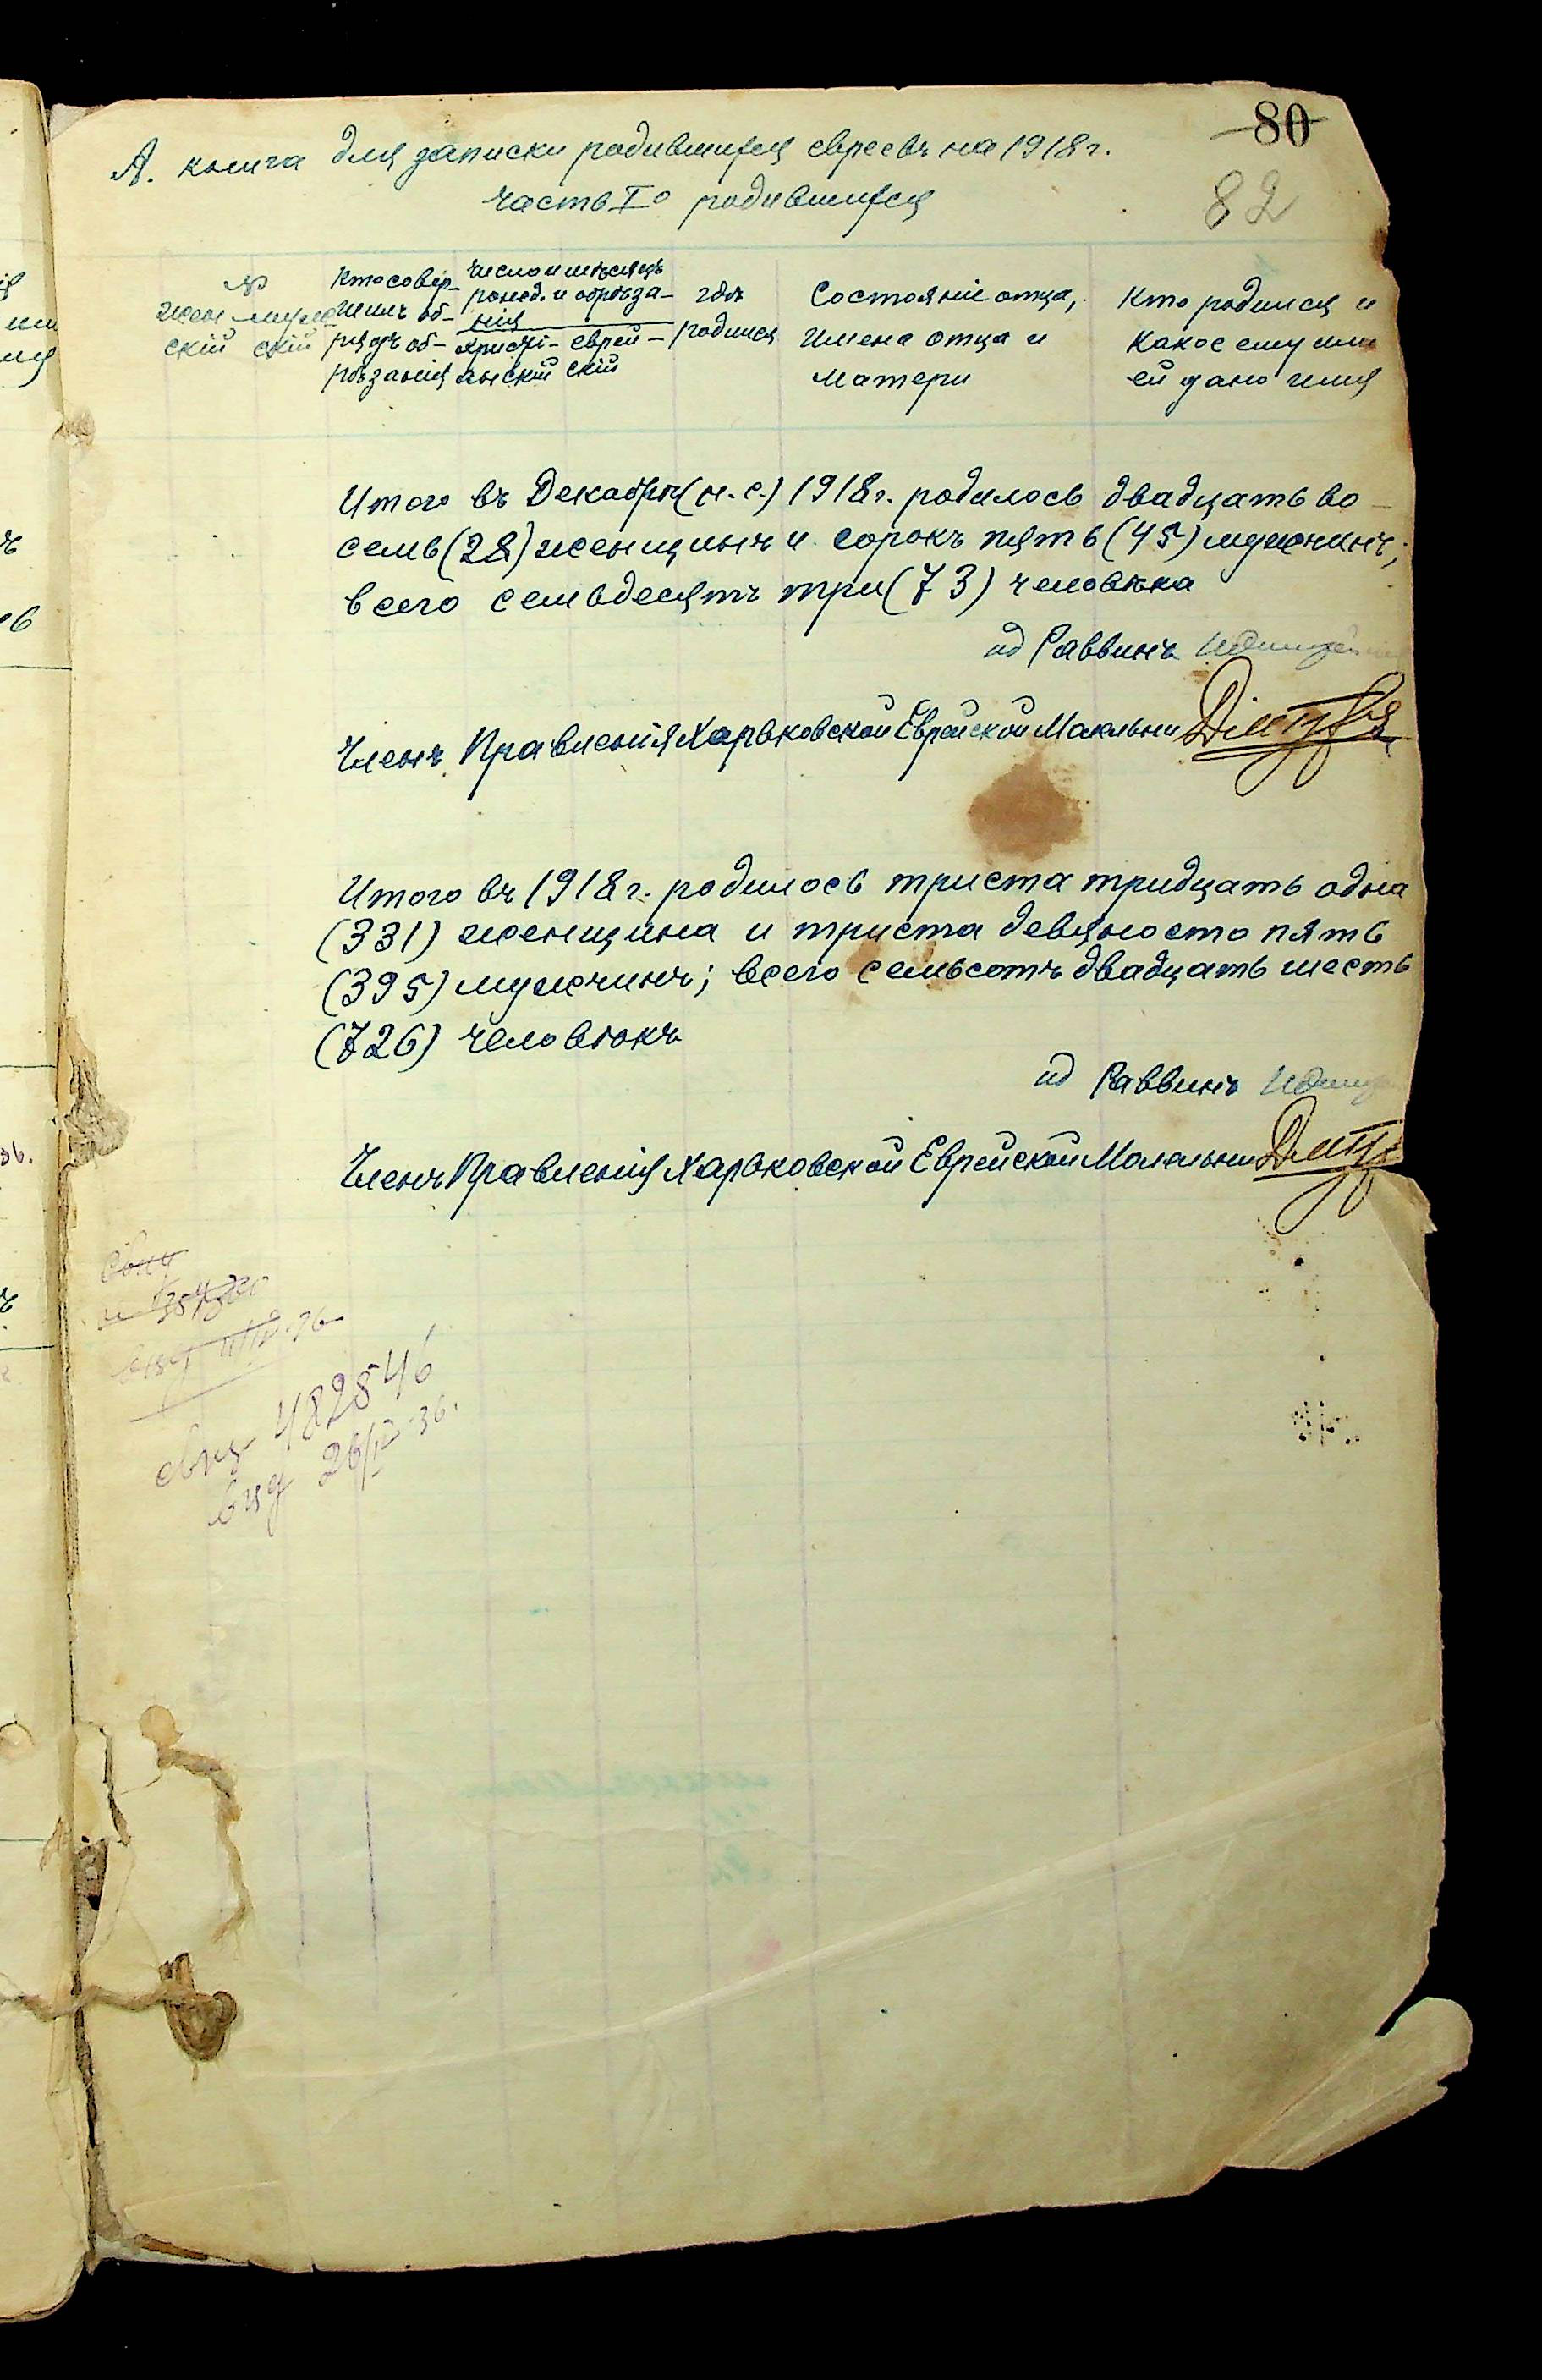 80
82
А. книга для записки родившихся евреевъ на 1918 г.
часть Iо родившихся
№
жен- муже-
скій скій
Кто совер-
шилъ об-
рядъ об-
рѣзанія
Число и мѣсяцъ
рожд. и обрѣза-
нія
христі- еврей-
анскій скій
гдѣ
родился
Состояніе отца,
имена отца и
матери
Кто родился и
какое ему или
ей дано имя
Итого въ Декабрѣ (н.с.) 1918 г. родилось двадцать во-
семь (28) женщинъ и сорокъ пять (45) мужчинъ;
всего семьдесятъ три (73) человѣка
ид Раввинъ
Членъ Правленія Харьковской Еврейской Молельни
Итого въ 1918 г. родилось триста тридцать одна
(331) женщина и триста девяносто пять
(395) мужчинъ; всего семьсотъ двадцать шесть
(726) человѣкъ
ид Раввинъ
Членъ Правленія Харьковской Еврейской Молельни
482546